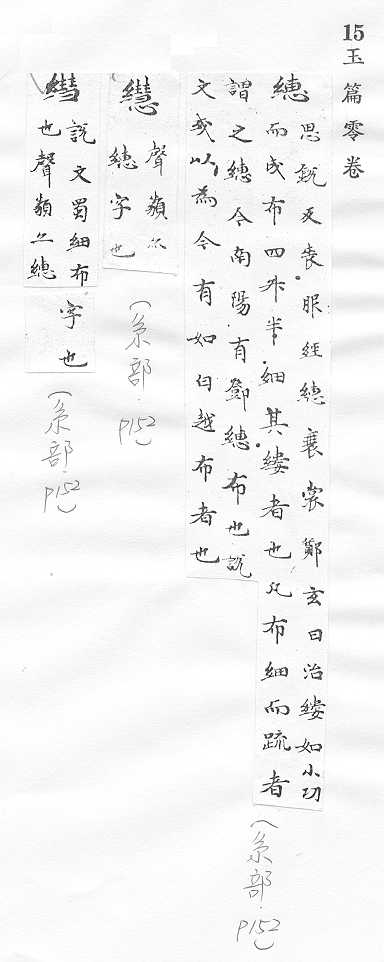 15玉篇零卷
繐
思銳反喪服經繐衰裳鄭玄曰治縷如小功
而成布四升半細其縷者也凡布細而疏者
謂之繐今南陽有鄧繐布也說
文或以為今有如白越布者也
(糸部.P152)
聲類亦
繐字也
(糸部.P152)
說文蜀細布
也聲類亦繐
字也
(糸部.P152)